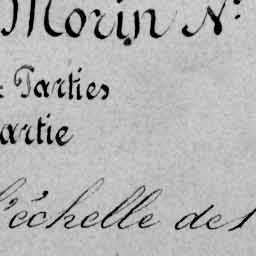 Morin N:
Parties
artie
l'échelle des